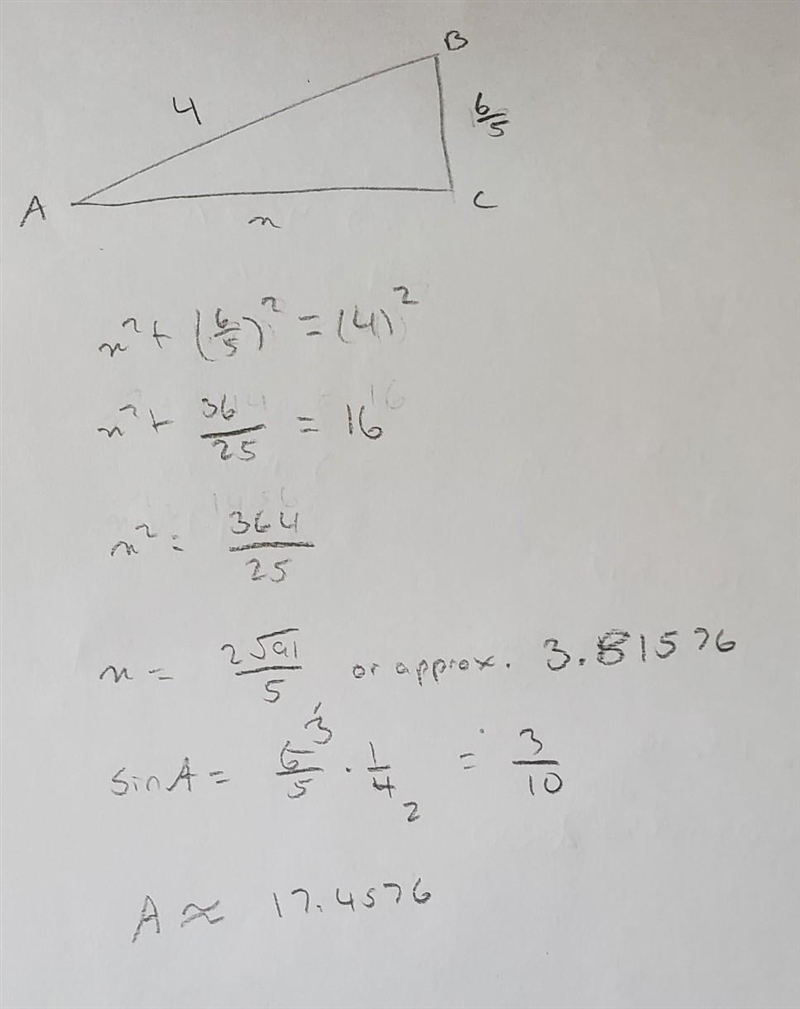 B
4
6/5
A
C
x
x² + (6/5)² = (4)²
x² + 36/25 = 16
x² = 364/25
x = 2√91/5 or approx. 3.81576
sin A = 6/5 3 · 1/4 2 = 3/10
A ≈ 17.4576